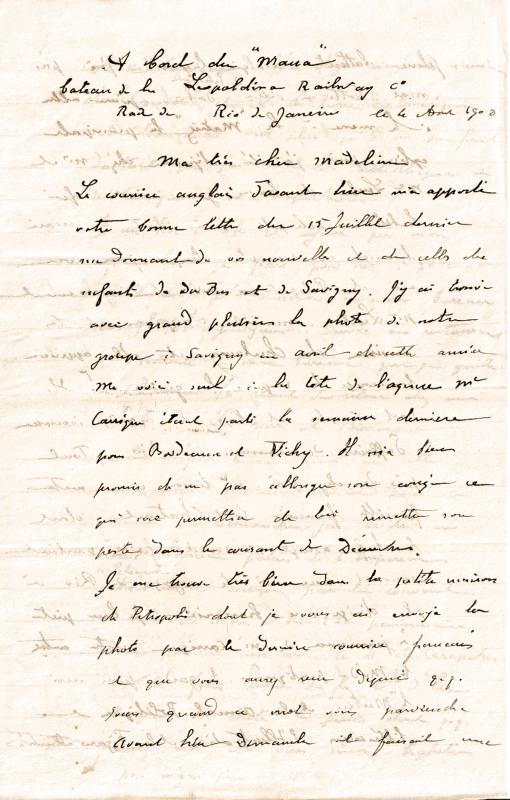 A bord du "Maua"
bateau de la Leopoldina Railway Co
Rade de Rio de Janeiro le 4 Aout 190
Ma très cher Madeleine
Le courrier anglais d'avant hier m'a apporté
votre bonne lettre du 15 Juillet dernier
me donnant de vos nouvelles et de celles des
enfants de Du Bus et de Savigny. J'y ai trouvé
avec grand plaisir la photo de notre
groupe à Savigny en avril de cette année
Me voici seul à la tête de l'agence Mr
étant parti la semaine dernière
pour Bordeaux et Vichy. Il m'a bien
promis de ne pas allonger son congé ce
qui me permettra de lui remettre son
poste dans le courant de Décembre.
Je me trouve très bien dans la petite maison
de Petropolis dont je vous ai envoyé la
photo par le dernier courrier français
et que vous aurez reçu depuis q.q.
jours quand ce mot vous parviendra
Avant hier Dimanche il faisait une